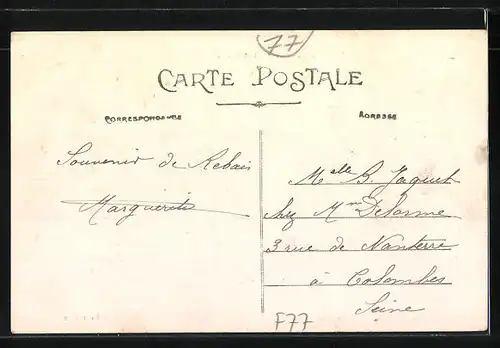 77
CARTE POSTALE
CORRESPONDANCE
ADRESSE
Souvenir de Rebais
Marguerite
Melle B. Jaquet
chez Mme Delorme
3 rue de Nanterre
à Colombes
Seine
F77